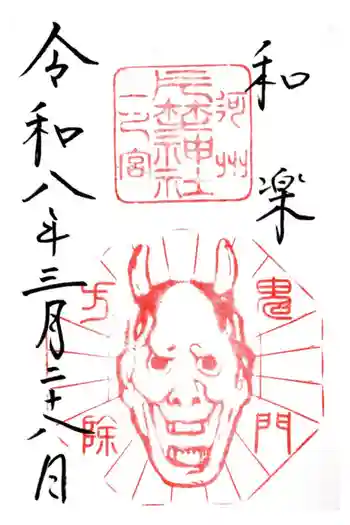 和楽
河州
片埜神社
一之宮
鬼門
方除
令和八年三月二十八日